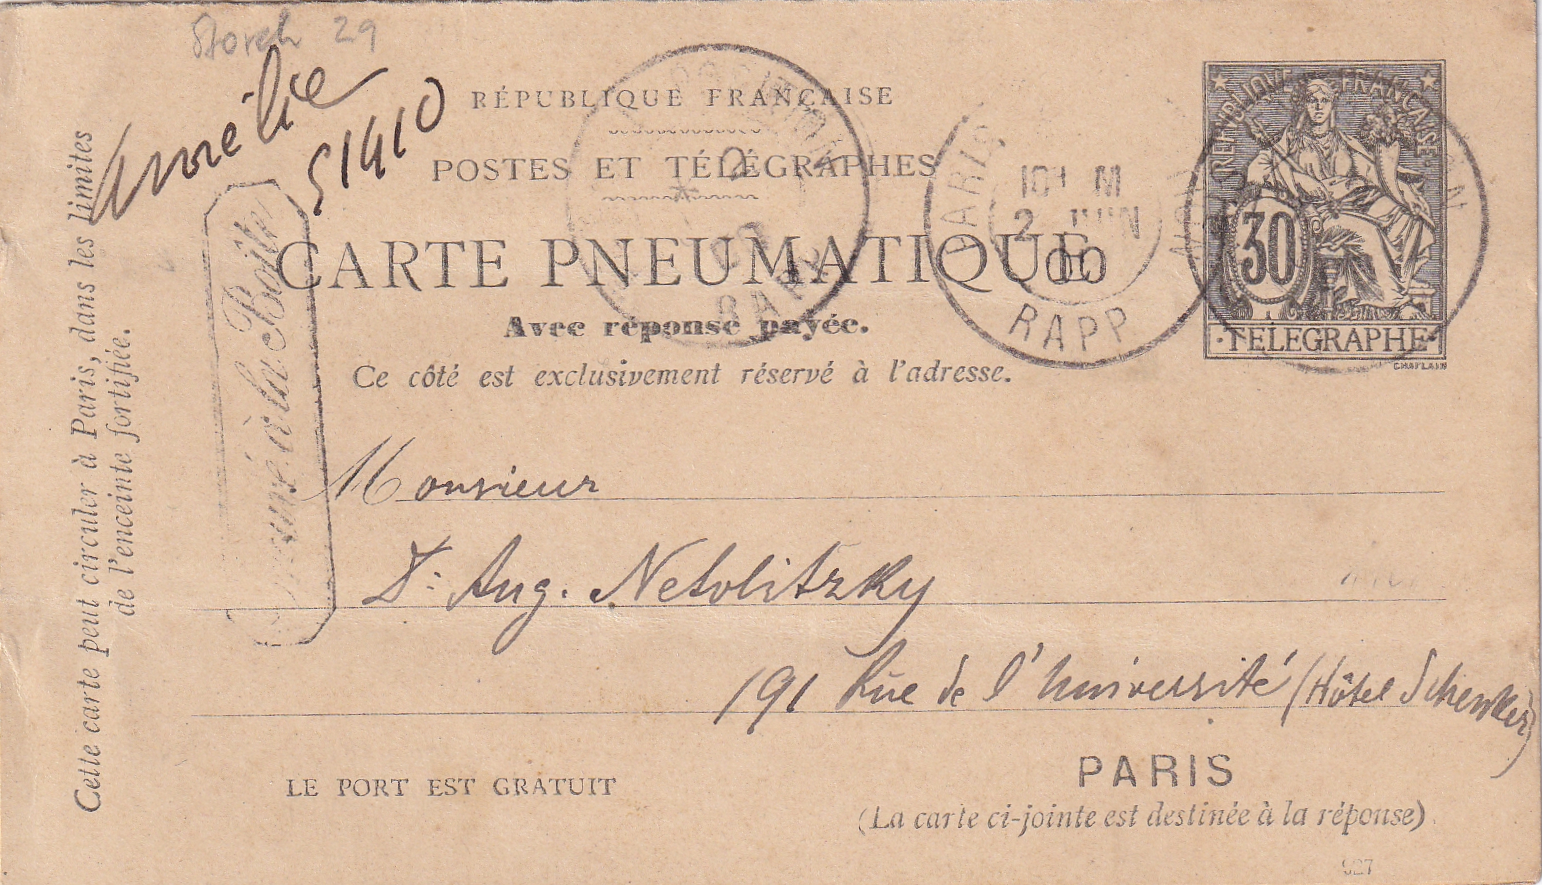 Storch 29
51410
RÉPUBLIQUE FRANÇAISE
POSTES ET TÉLÉGRAPHES
CARTE PNEUMATIQUE
Avec réponse payée.
Ce côté est exclusivement réservé à l'adresse.
Cette carte peut circuler à Paris, dans les limites
de l'enceinte fortifiée.
à la Boîte
2
RAPP
PARIS
10 M
2 JUIN
00
RAPP
RÉPUBLIQUE FRANÇAISE
30
·TELEGRAPHE·
CHAPLAIN
Monsieur
Dr. Aug. Netolitzky
191 Rue de l'Université (Hôtel Schenker)
PARIS
LE PORT EST GRATUIT
(La carte ci-jointe est destinée à la réponse)
927